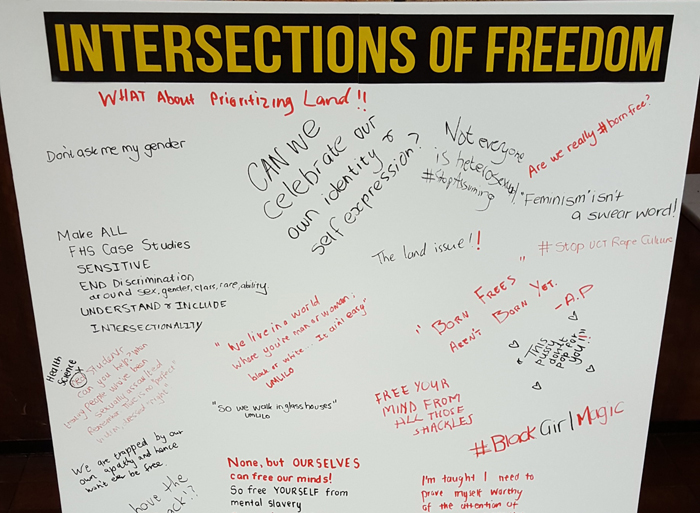 INTERSECTIONS OF FREEDOM
WHAT About Prioritizing Land!!
Don't ask me my gender
CAN WE
celebrate our
own identity &
self expression?
Not everyone
is heterosexual.
#StopAssuming
Are we really #bornfree?
"Feminism" isn't
a swear word!
#Stop UCT Rape Culture
The land issue!!
Make ALL
FHS Case Studies
SENSITIVE
END Discrimination
around sex, gender, class, race, ability.
UNDERSTAND & INCLUDE
INTERSECTIONALITY
"We live in a world
where you're man or woman;
black or white. It aint easy"
UMLILO
"BORN FREES"
AREN'T BORN YET.
-A.P
"This
pussy
don't
pop for
you!!"
Health
Science
students
can you
people who've been
sexually assaulted
"So we walk in glass houses"
UMLILO
FREE YOUR
MIND FROM
ALL THOSE
SHACKLES
#BlackGirlMagic
We are trapped by our
own apathy and hence
won't ever be free.
None, but OURSELVES
can free our minds!
So free YOURSELF from
mental slavery
I'm taught I need to
prove myself worthy
of the attention of
the